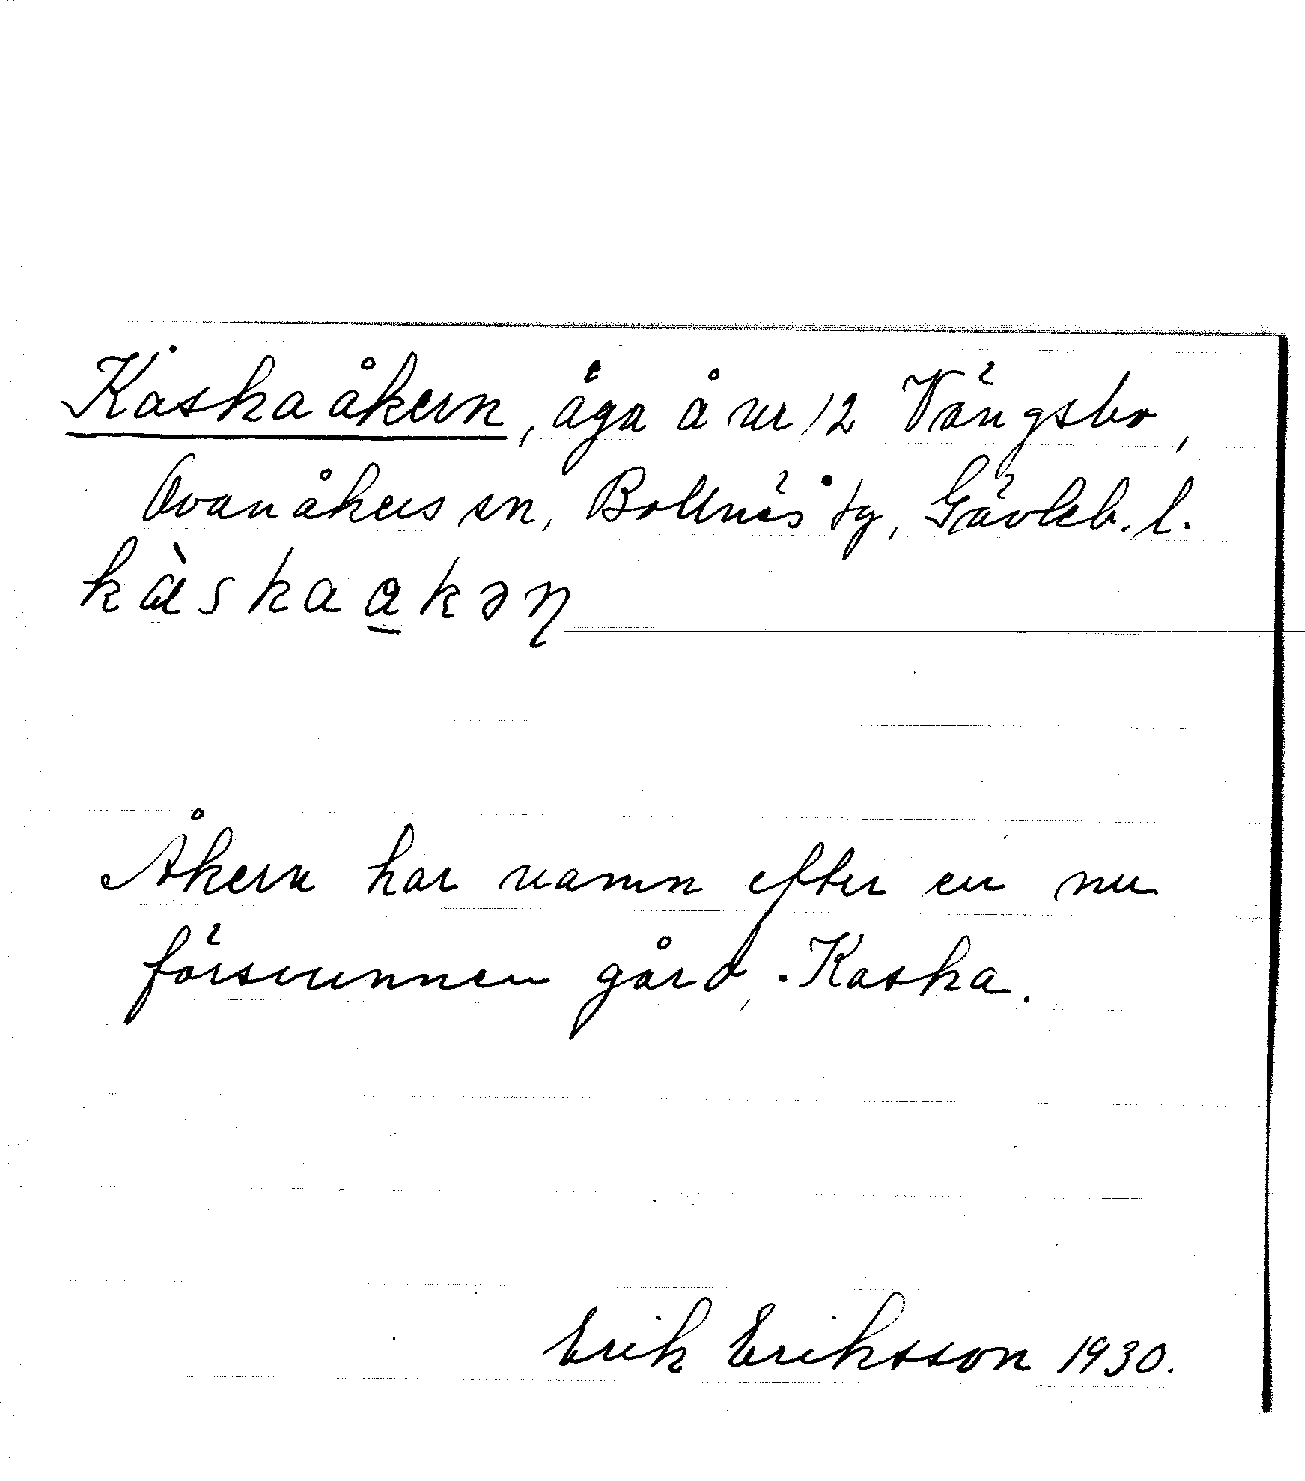 Kaskaåkern, äga å nr 12 Vängsbo,
Ovanåkers sn, Bollnäs tg, Gävleb. l.
kàskaa̲kən
Åkern har namn efter en nu
försvunnen gård, Kaska.
Erik Eriksson 1930.